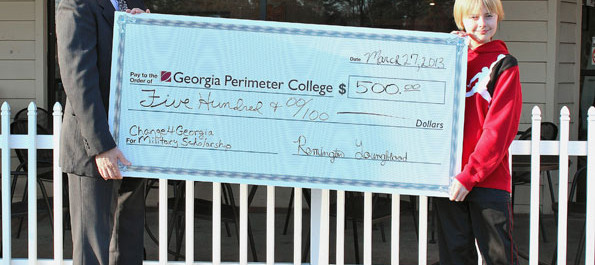 Date March 27, 2013
Pay to the
Order of Georgia Perimeter College $ 500.00
Five Hundred & 00/100 Dollars
Change4Georgia
For Military Scholarship Remington Youngblood